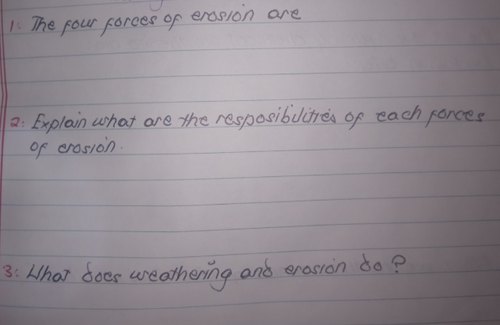 1. The four forces of erosion are
2. Explain what are the resposibilities of each forces
of erosion.
3: What does weathering and erosion do?